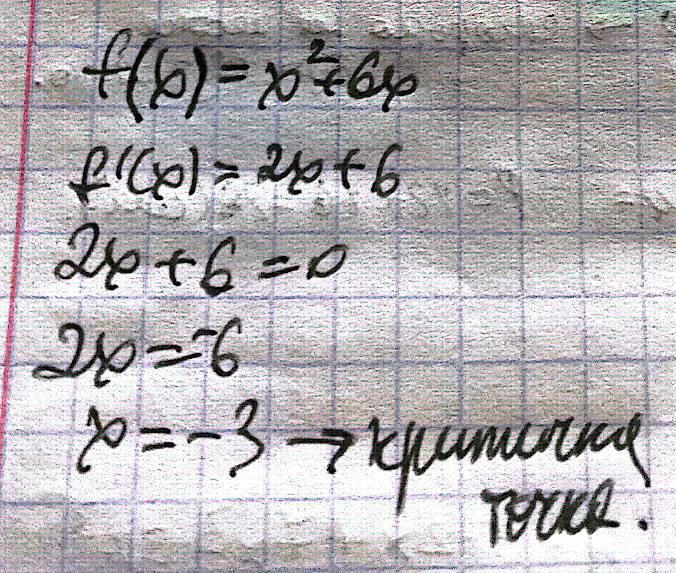 f(x) = x² + 6x
f'(x) = 2x + 6
2x + 6 = 0
2x = -6
x = -3 → критична
точка.